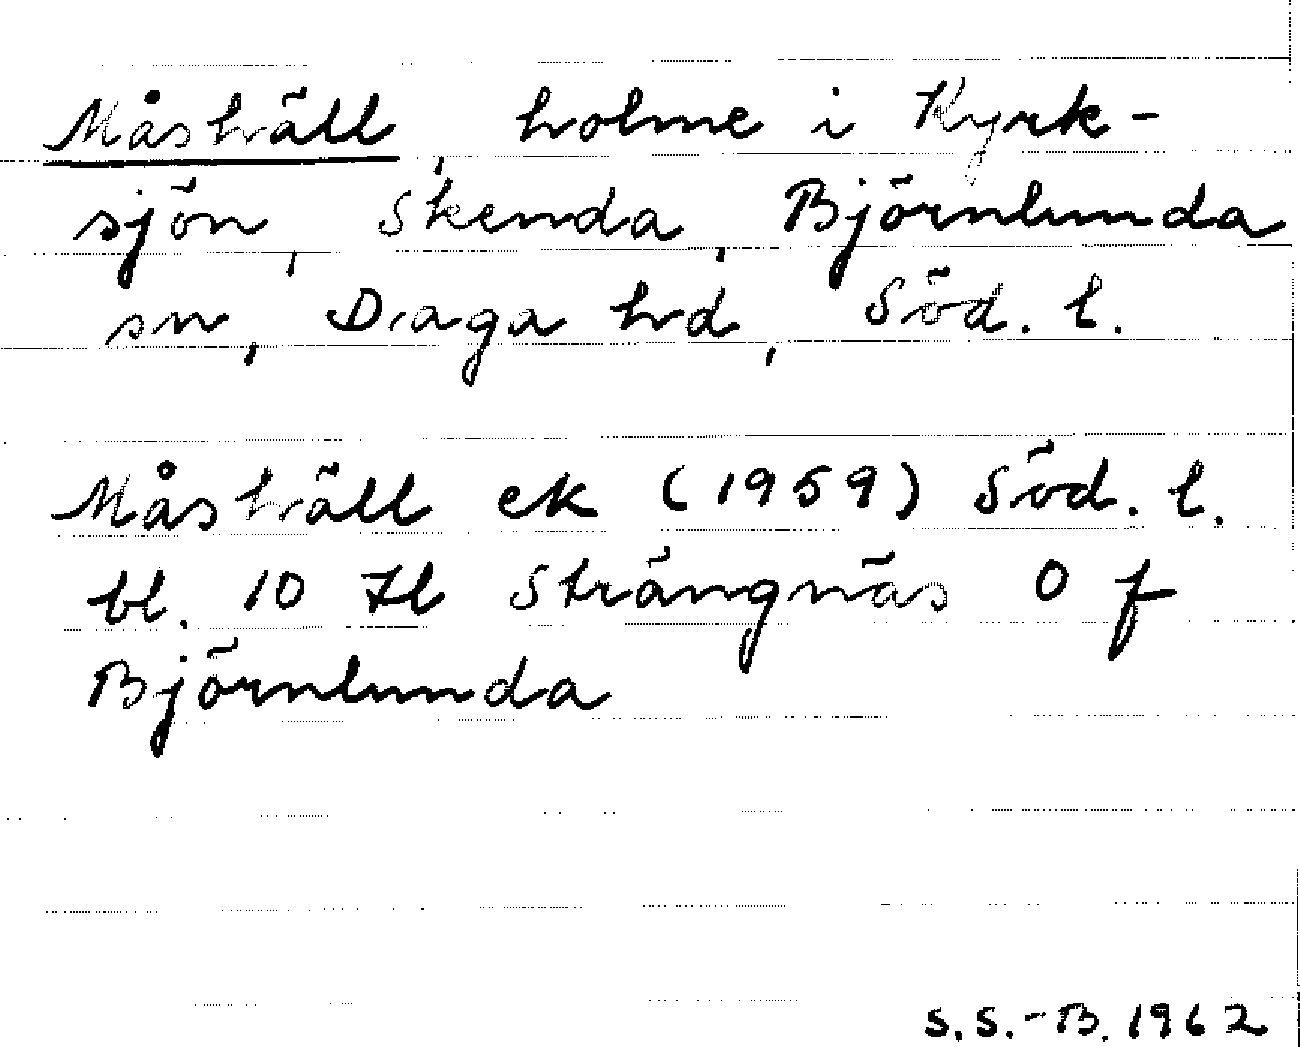 Måshäll, holme i Kyrk-
sjön, Skenda, Björnlunda
sn, Daga hd, Söd. l.
Måshäll ek (1959) Söd. l.
bl. 10 tl Strängnäs O f
Björnlunda
S.S.-B. 1962